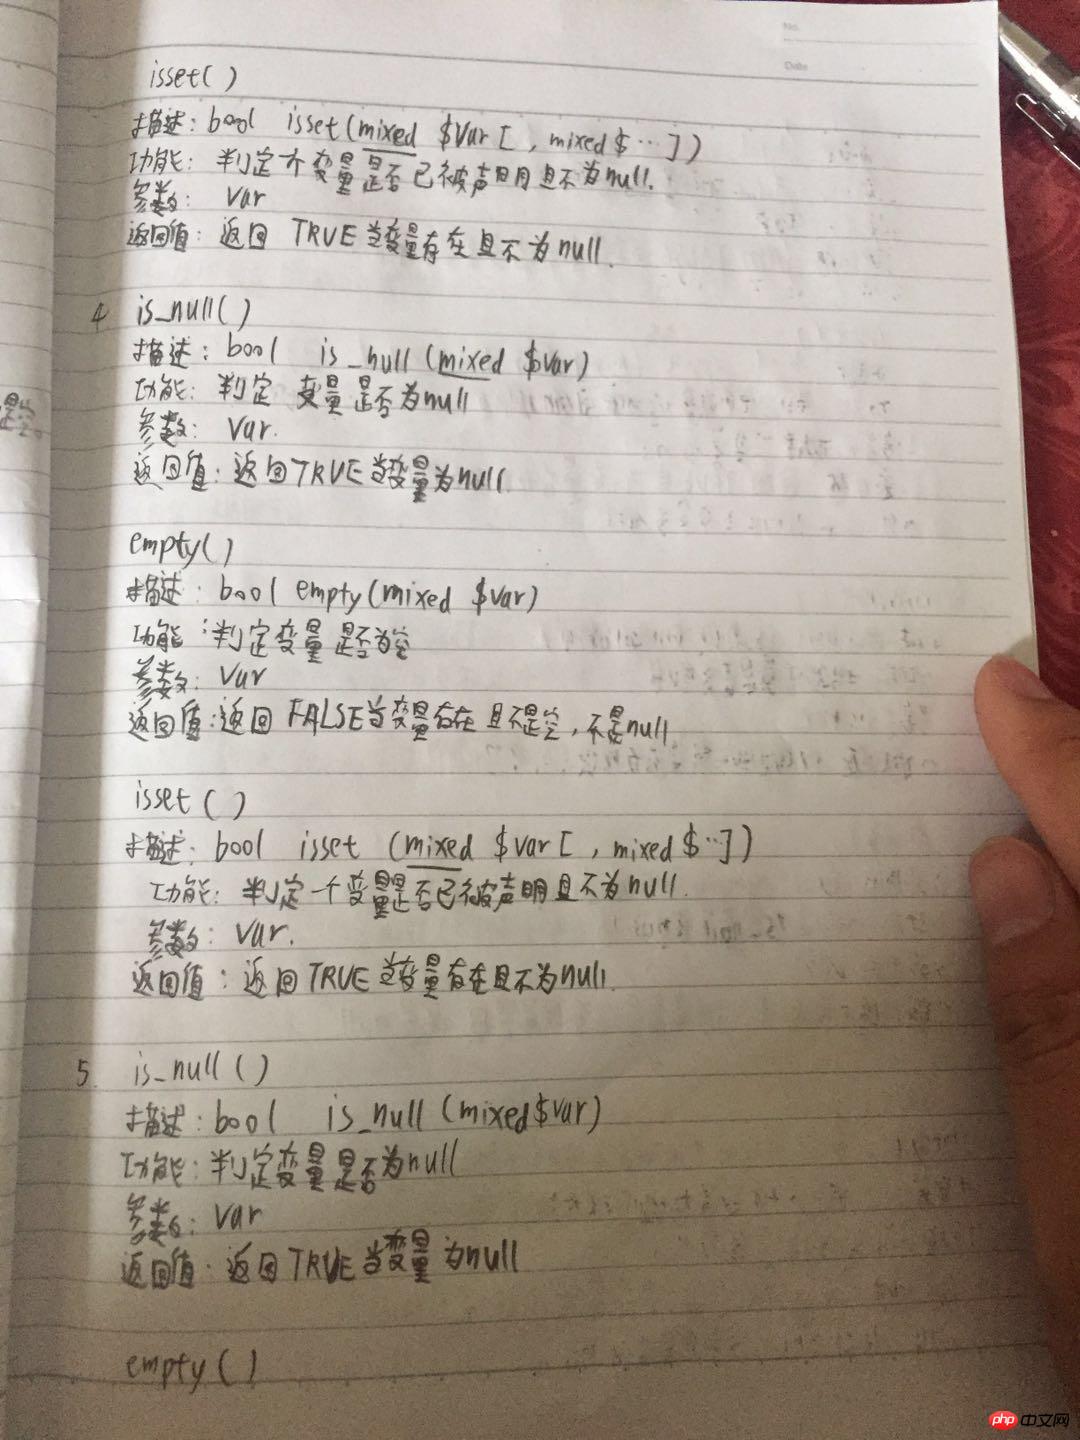 isset()
描述: bool isset(mixed $var[ , mixed $…])
功能: 判定个变量是否已被声明且不为null.
参数: var
返回值: 返回 TRUE当变量存在且不为null.
4 is_null()
描述: bool is_null (mixed $var)
功能: 判定 变量是否为null
参数: var.
返回值: 返回TRUE当变量为null
empty()
描述: bool empty(mixed $var)
功能: 判定变量是否为空
参数: var
返回值: 返回 FALSE当变量存在且不是空, 不是null
isset ()
描述: bool isset (mixed $var[ , mixed $…])
功能: 判定一个变量是否已被声明且不为null.
参数: var.
返回值: 返回TRUE当变量存在且不为null.
5. is_null ()
描述: bool is_null (mixed $var)
功能: 判定变量是否为null
参数: var
返回值: 返回TRUE当变量为null
empty ()
是空。
php 中文网